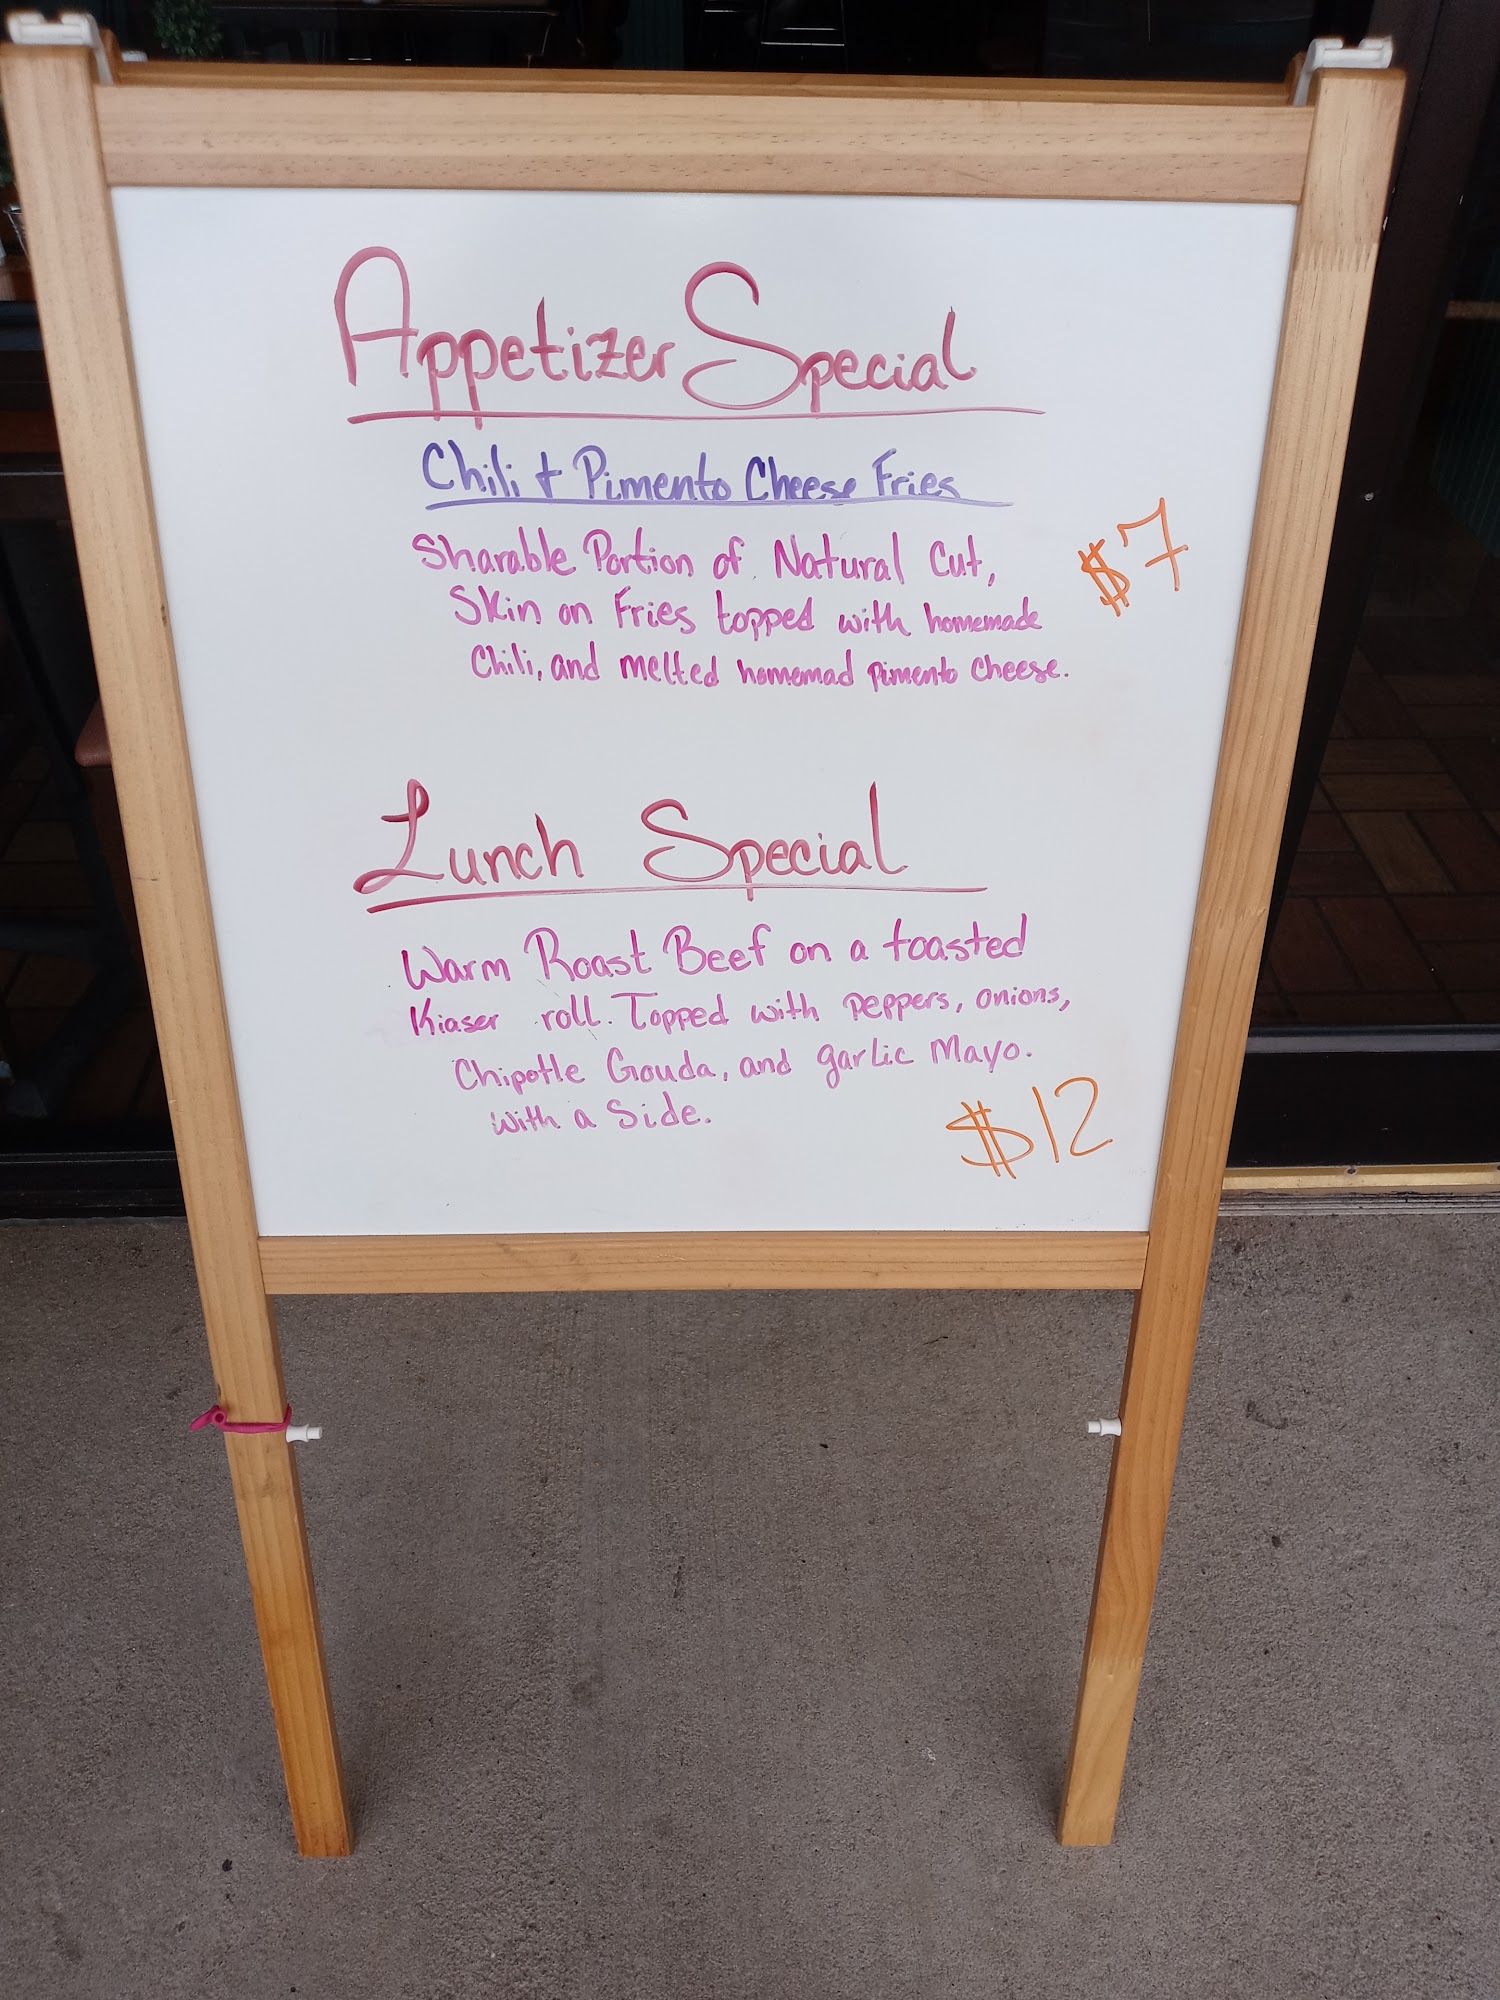 Appetizer Special
Chili + Pimento Cheese Fries
Sharable Portion of Natural Cut,
$7
Skin on Fries topped with homemade
Chili, and melted homemad pimento cheese.
Lunch Special
Warm Roast Beef on a toasted
Kiaser roll. Topped with peppers, onions,
Chipotle Gouda, and garlic Mayo.
with a Side.
$12